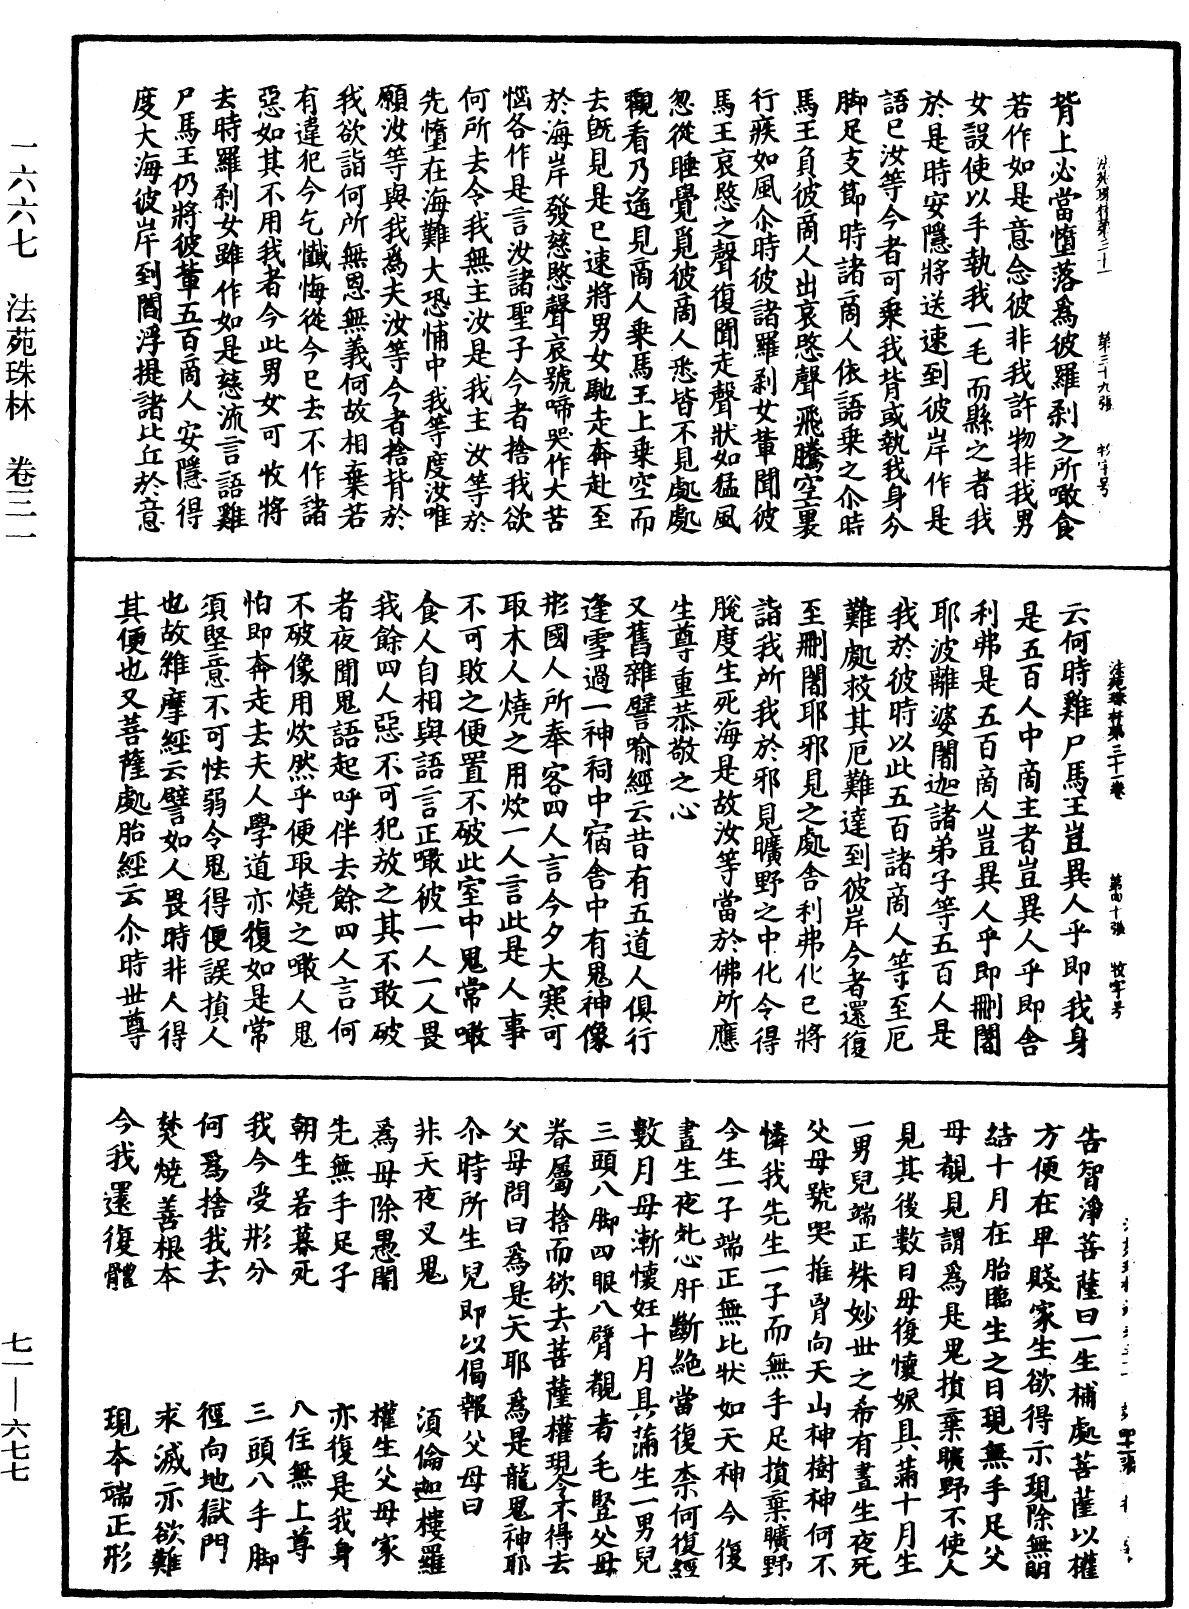 一六六七　法苑珠林　卷三一
七一—六七七
法苑珠林第三十一　第三十九張　牧字号
背上必當墮落爲彼羅刹之所噉食
若作如是意念彼非我許物非我男
女設使以手執我一毛而懸之者我
於是時安隱將送速到彼岸作是
語已汝等今者可乘我背或執我身分
脚足支節時諸商人依語乘之尒時
馬王負彼商人出哀愍聲飛騰空裏
行疾如風尒時彼諸羅刹女輩聞彼
馬王哀愍之聲復聞走聲狀如猛風
忽從睡覺覓彼商人悉皆不見處處
觀看乃遙見商人乘馬王上乘空而
去旣見是已速將男女馳走奔赴至
於海岸發慈愍聲哀號啼哭作大苦
惱各作是言汝諸聖子今者捨我欲
何所去令我無主汝是我主汝等於
先墮在海難大恐怖中我等度汝唯
願汝等與我爲夫汝等今者捨背於
我欲詣何所無恩無義何故相棄若
有違犯今乞懺悔從今已去不作諸
惡如其不用我者今此男女可收將
去時羅刹女雖作如是慈流言語雞
尸馬王仍將彼輩五百商人安隱得
度大海彼岸到閻浮提諸比丘於意
法苑珠林第三十一卷　第四十張　牧字号
云何時雞尸馬王豈異人乎即我身
是五百人中商主者豈異人乎即舍
利弗是五百商人豈異人乎即刪闍
耶波離婆闍迦諸弟子等五百人是
我於彼時以此五百諸商人等至厄
難處救其厄難達到彼岸今者還復
至刪闍耶邪見之處舍利弗化已將
詣我所我於邪見曠野之中化令得
脫度生死海是故汝等當於佛所應
生尊重恭敬之心
又舊雜譬喻經云昔有五道人俱行
逢雪過一神祠中宿舍中有鬼神像
形國人所奉客四人言今夕大寒可
取木人燒之用炊一人言此是人事
不可敗之便置不破此室中鬼常噉
食人自相與語言正噉彼一人一人畏
我餘四人惡不可犯放之其不敢破
者夜聞鬼語起呼伴去餘四人言何
不破像用炊然乎便取燒之噉人鬼
怕即奔走去夫人學道亦復如是常
須堅意不可怯弱令鬼得便誤損人
也故維摩經云譬如人畏時非人得
其便也又菩薩處胎經云尒時世尊
告智淨菩薩曰一生補處菩薩以權
方便在卑賤家生欲得示現除無明
結十月在胎臨生之日現無手足父
母覩見謂爲是鬼捐棄曠野不使人
見其後數日母復懷妊具滿十月生
一男兒端正殊妙世之希有晝生夜死
父母號哭推胷向天山神樹神何不
憐我先生一子而無手足捐棄曠野
今生一子端正無比狀如天神今復
晝生夜死心肝斷絕當復柰何復經
數月母漸懷妊十月具滿生一男兒
三頭八脚四眼八臂覩者毛豎父母
眷屬捨而欲去菩薩權現令不得去
父母問曰爲是天耶爲是龍鬼神耶
尒時所生兒即以偈報父母曰
非天夜叉鬼　須倫迦樓羅
爲母除愚闇　權生父母家
先無手足子　亦復是我身
朝生若暮死　八住無上尊
我今受形分　三頭八手脚
何爲捨我去　徑向地獄門
焚燒善根本　求滅亦欲難
今我還復體　現本端正形